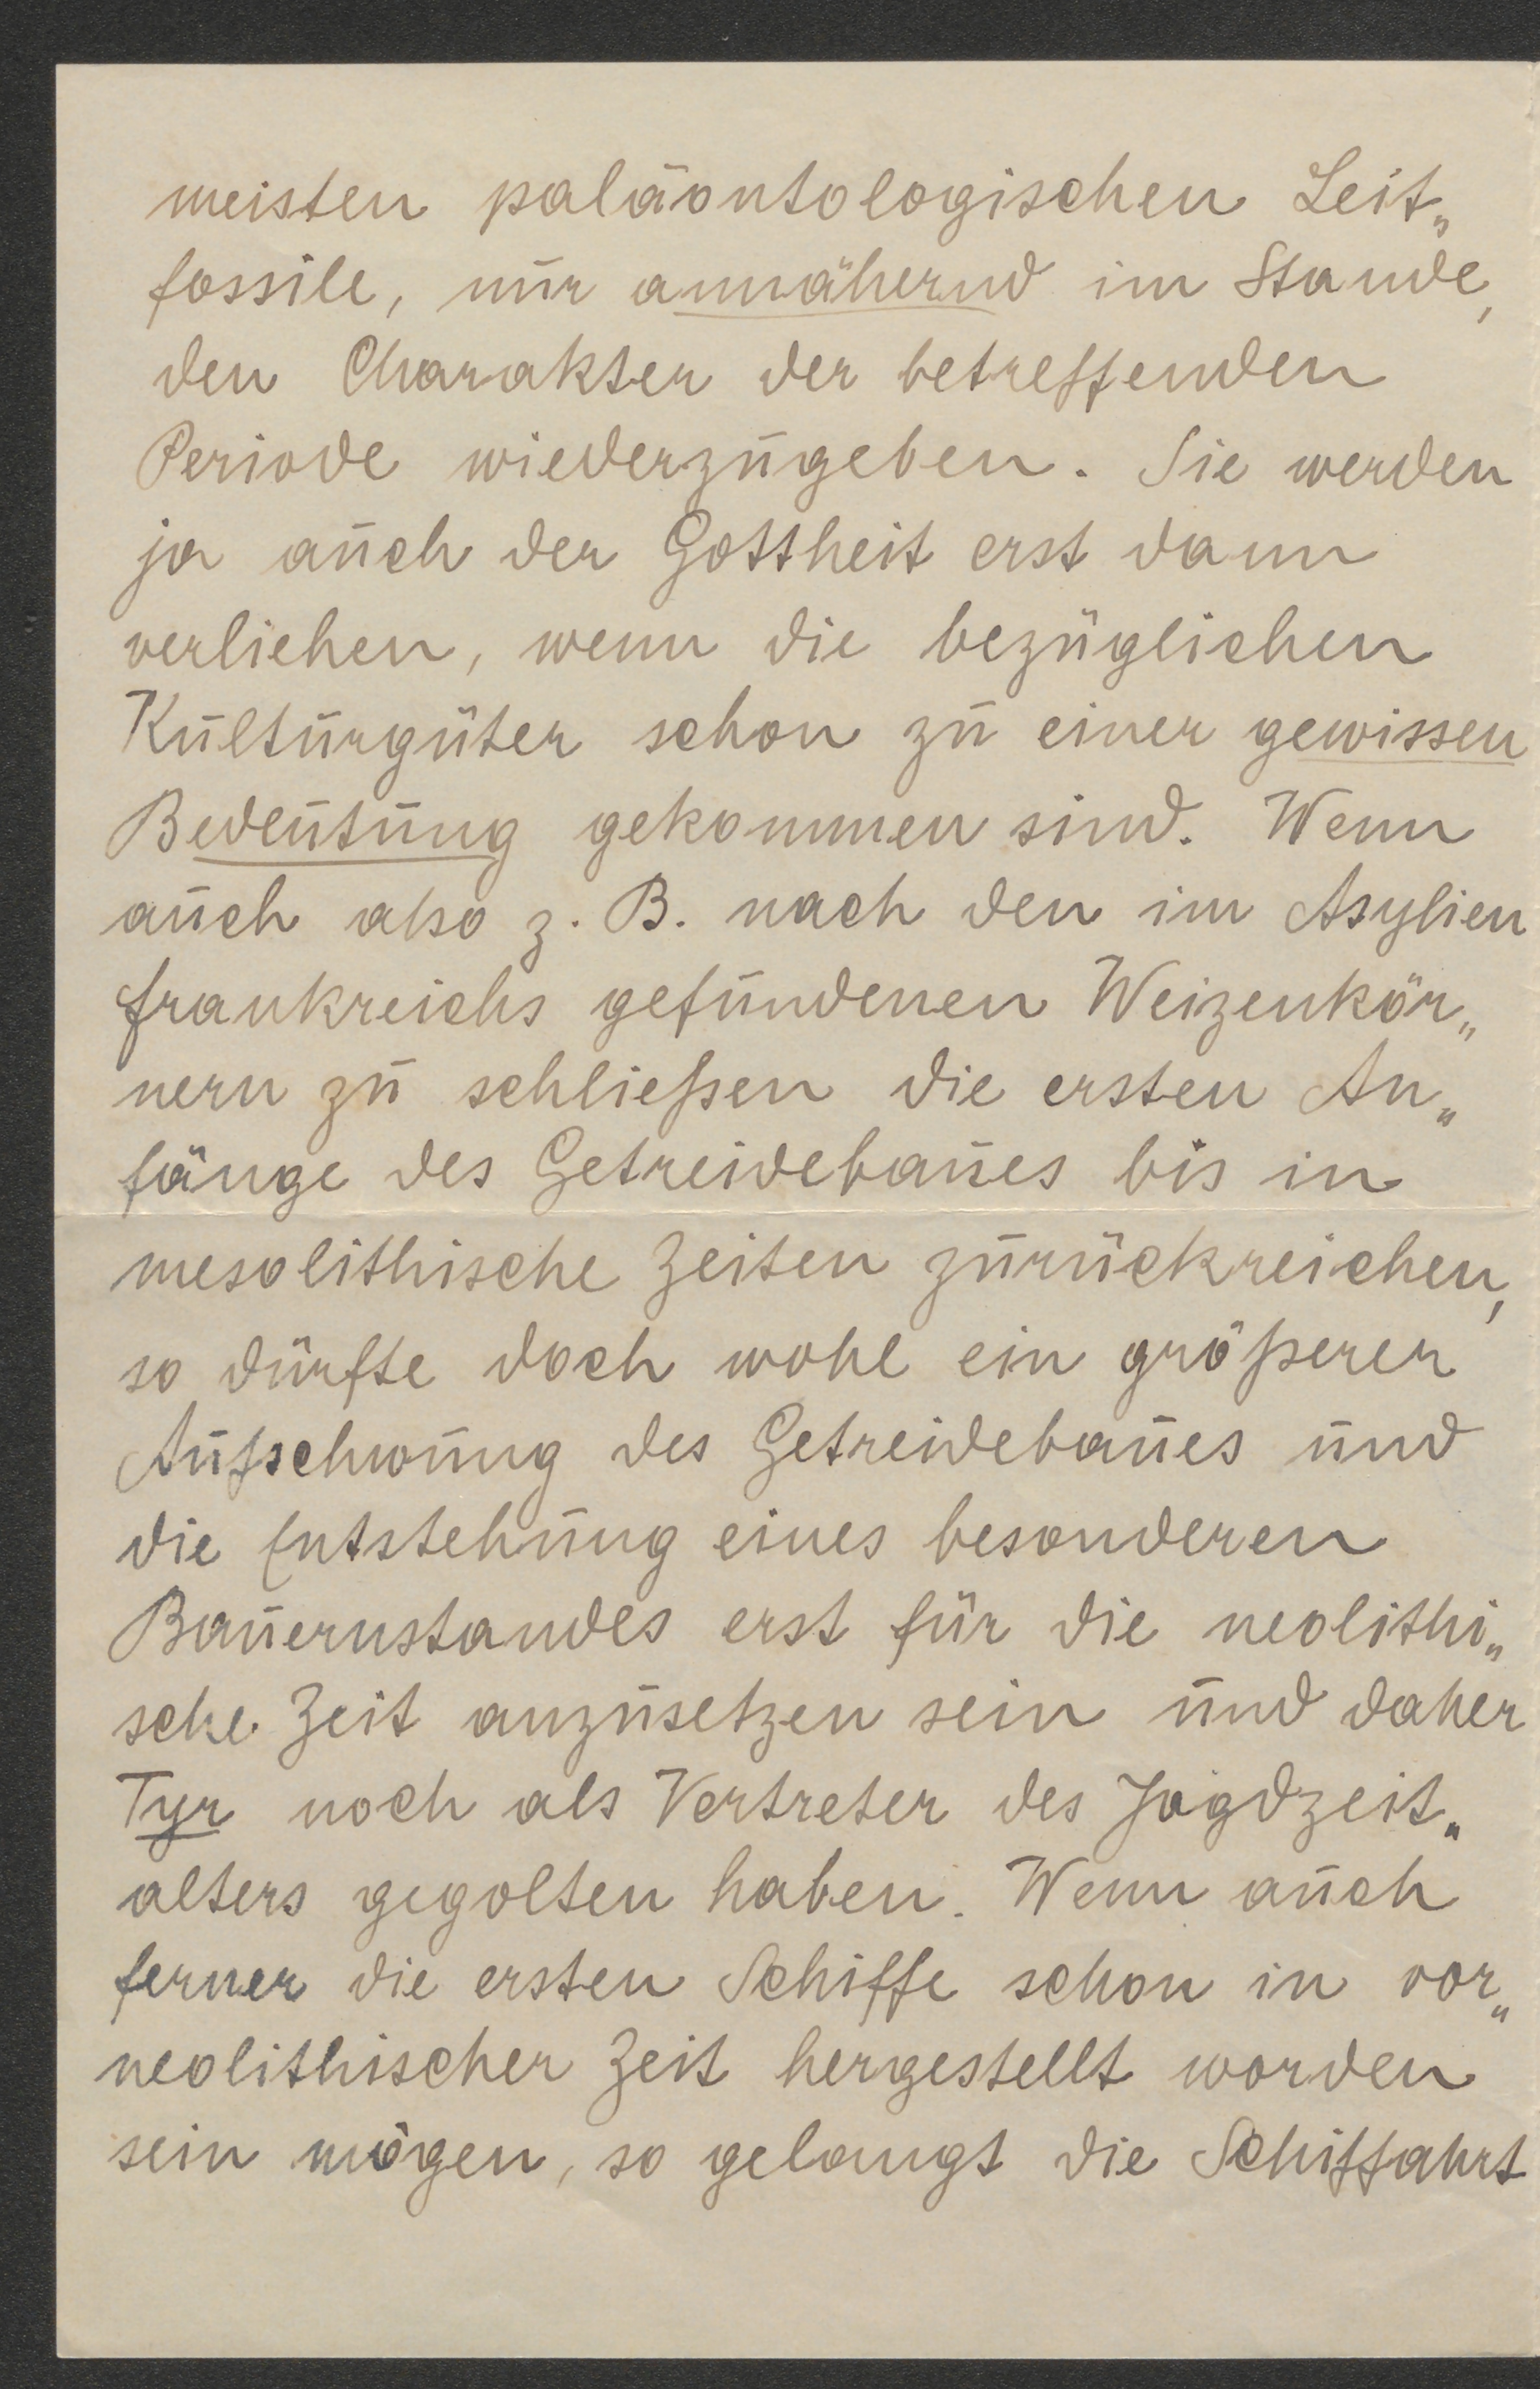 meisten paläontologischen Leit„
fossile, nur annähernd im Stande,
den Charakter der betreffenden
Periode wiederzugeben. Sie werden
ja auch der Gottheit erst dann
verliehen, wenn die bezüglichen
Kulturgüter schon zu einer gewissen
Bedeutung gekommen sind. Wenn
auch also z. B. nach den im Asylien
Frankreichs gefundenen Weizenkör„
nern zu schließen die ersten An„
fänge des Getreidebaues bis in
mesolithische Zeiten zurückreichen,
so dürfte doch wohl ein größerer
Aufschwung des Getreidebaues und
die Entstehung eines besonderen
Bauernstandes erst für die neolithi„
sche Zeit anzusetzen sein und daher
Tyr noch als Vertreter des Jagdzeit„
alters gegolten haben. Wenn auch
ferner die ersten Schiffe schon in vor„
neolithischer Zeit hergestellt worden
sein mögen, so gelangt die Schiffahrt